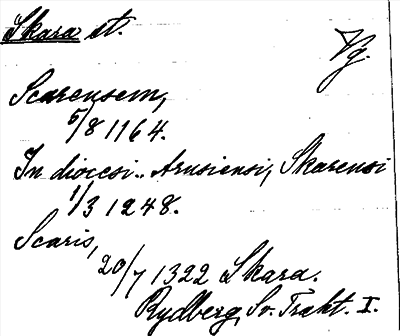 Skara st. Vg.
Scarensem,
5/8 1164.
In diocesi.. Arusiensi, Skarensi
1/3 1248.
Scaris,
20/7 1322 Skara.
Rydberg, Sv. Trakt. I.